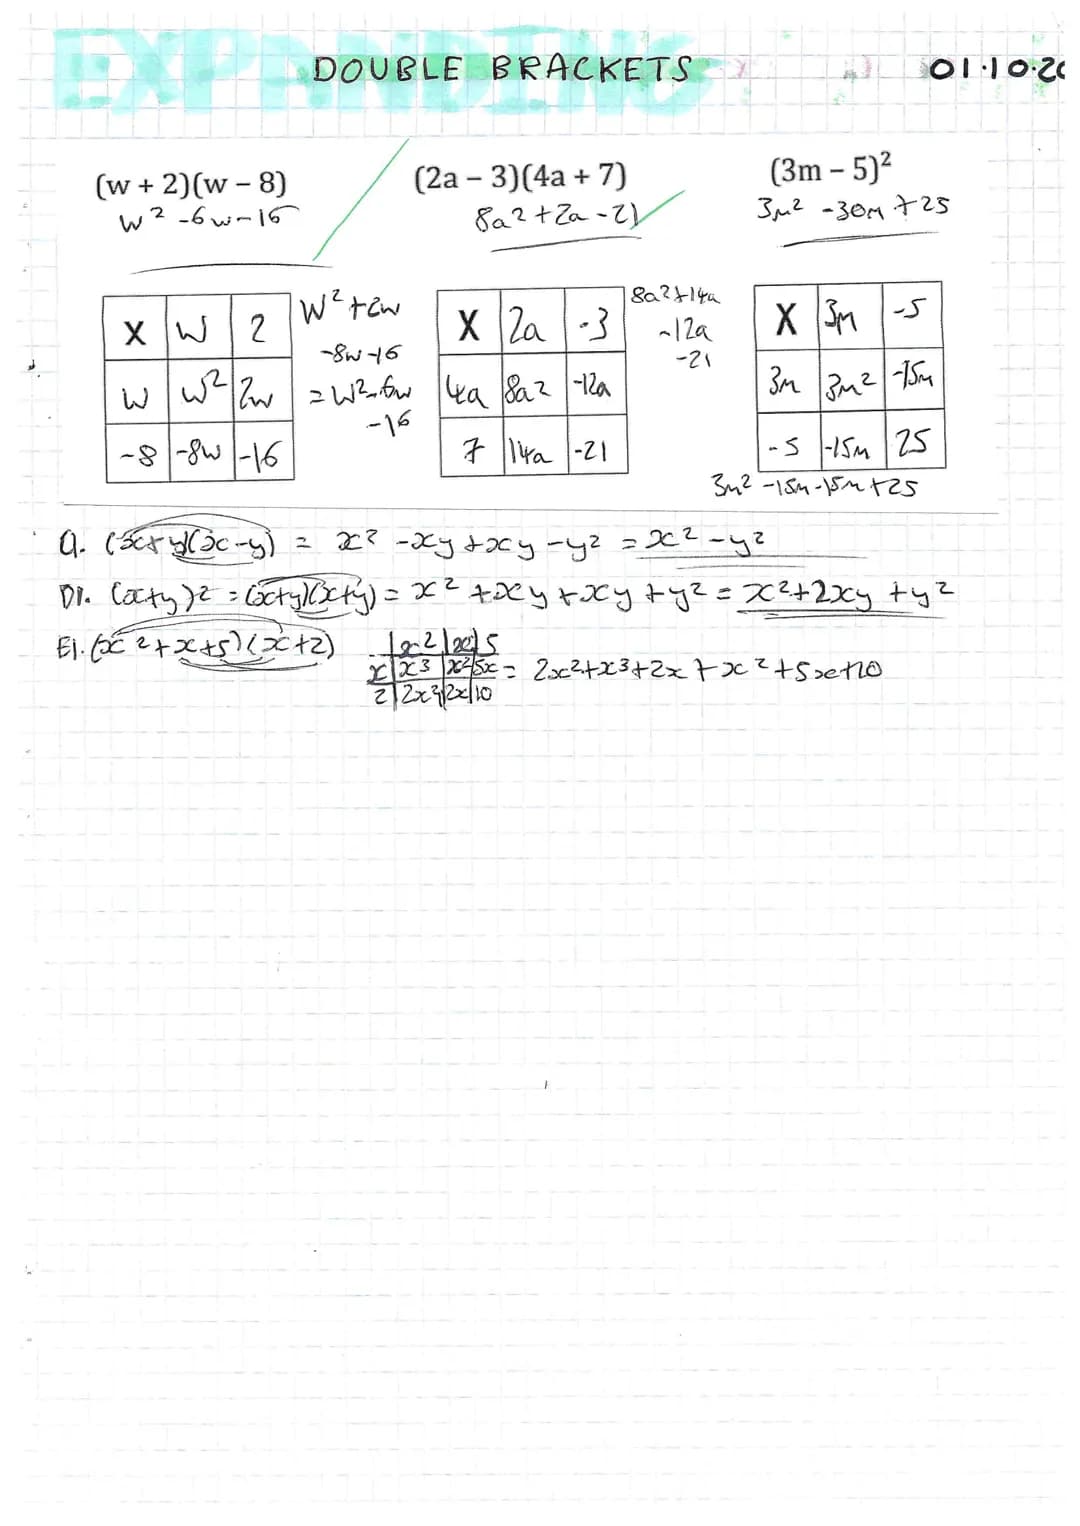 EXPANDING
DOUBLE BRACKETS
01.10.20
(w + 2)(w – 8)
w² -6w-16
(2a – 3)(4a + 7)
8a2+2a-21
(3m – 5)²
3m² -30m +25
X w 2
w w² 2w
-8 -8w -16
w²+2w
-8w-16
=w²-6w
-16
X 2a -3
4a 8a2 -12a
7 14a -21
8a2+14a
-12a
-21
X 3m -5
3m 3m² -15m
-5 -15m 25
3m² -15m-15m+25
(x+y)(x-y) = x² -xy+xy-y² = x²-y²
D1. (x+y)² = (x+y)(x+y) = x² +xy+xy+y² = x²+2xy+y²
E1. (x²+x+5)(x+2)
x² x 5
x x3 x² 5x = 2x²+x3+2x+x²+5x+10
2 2x² 2x 10